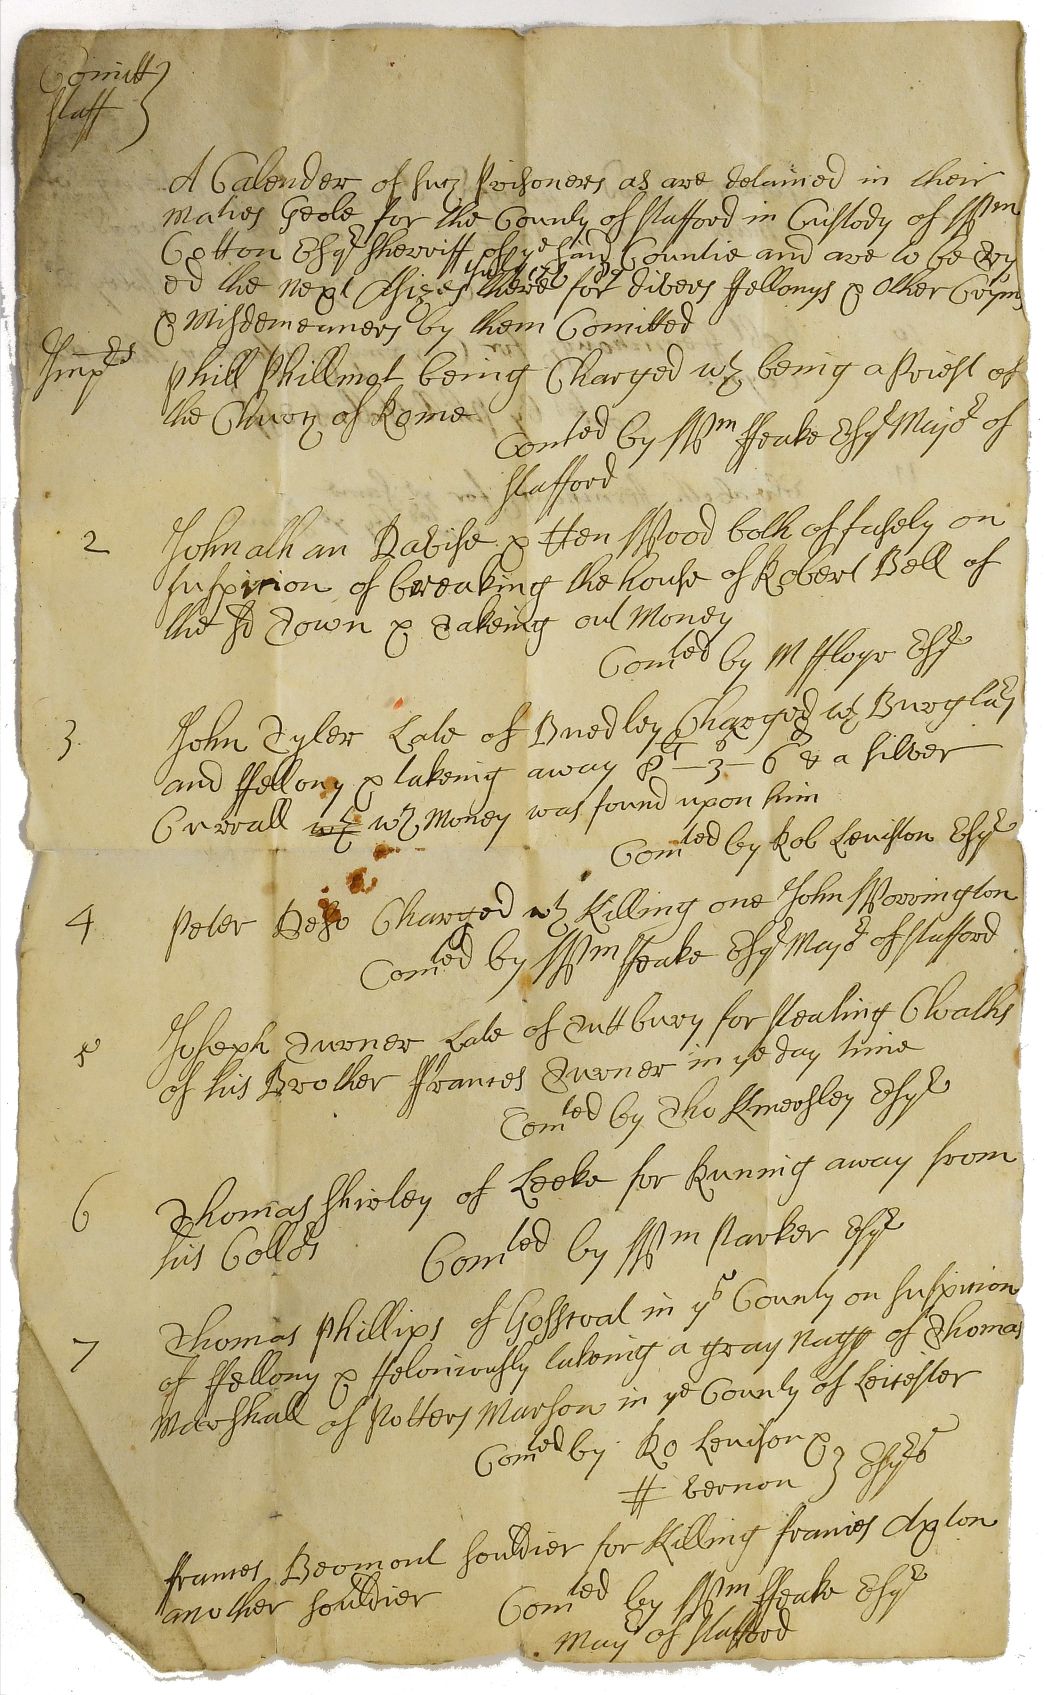 Comitt
Staff
A Calender of such Prisoners as are detained in their
Maties Geole for the County of Stafford in Custody of Wm
Cotton Esqr Sherriff of ye said Countie and are to be Try
ed the next Assizes there for divers ffellonys & other Cryms
& Misdemeanners by them Comitted
Imprs
Phill Phillmot being Charged wth being a Priest of
the Church of Rome
Comted by Wm ffeake Esqr Mayor of
Stafford
2 Johnathan Davise & Hen Wood both of on
suspition of breaking the house of Robert Bell of
the sd Town & Takeing out Money
Comted by M ffloyr Esqr
3 John Tyler Late of Buedley Charged wth Burglary
and ffellony & takeing away 8 - 3 - 6 & a silver
Currall wch wch Money was found upon him
Comted by Rob Leuison Esqr
4 Peter Charged wth Killing one John Worrington
Comted by Wm ffeake Esqr Mayor of Stafford
5 Joseph Turner Late of Tuttbury for stealing Cloaths
of his Brother ffrances Turner in ye day time
Comted by Tho Kinersley Esqr
6 Thomas Shirley of Leeke for Runing away from
his Collrs Comted by Wm Parker Esqr
7 Thomas Phillips of in ys County on suspition
of ffellony & ffeloniously takeing a gray nagg of Thomas
Marshall of Potters Marson in ye County of Leicester
Comted by Ro Leuison &
H Vernon Esqrs
ffrances Beomont souldier for Killing frances Axton
another souldier Comted by Wm ffeake Esqr
Mayr of Stafford